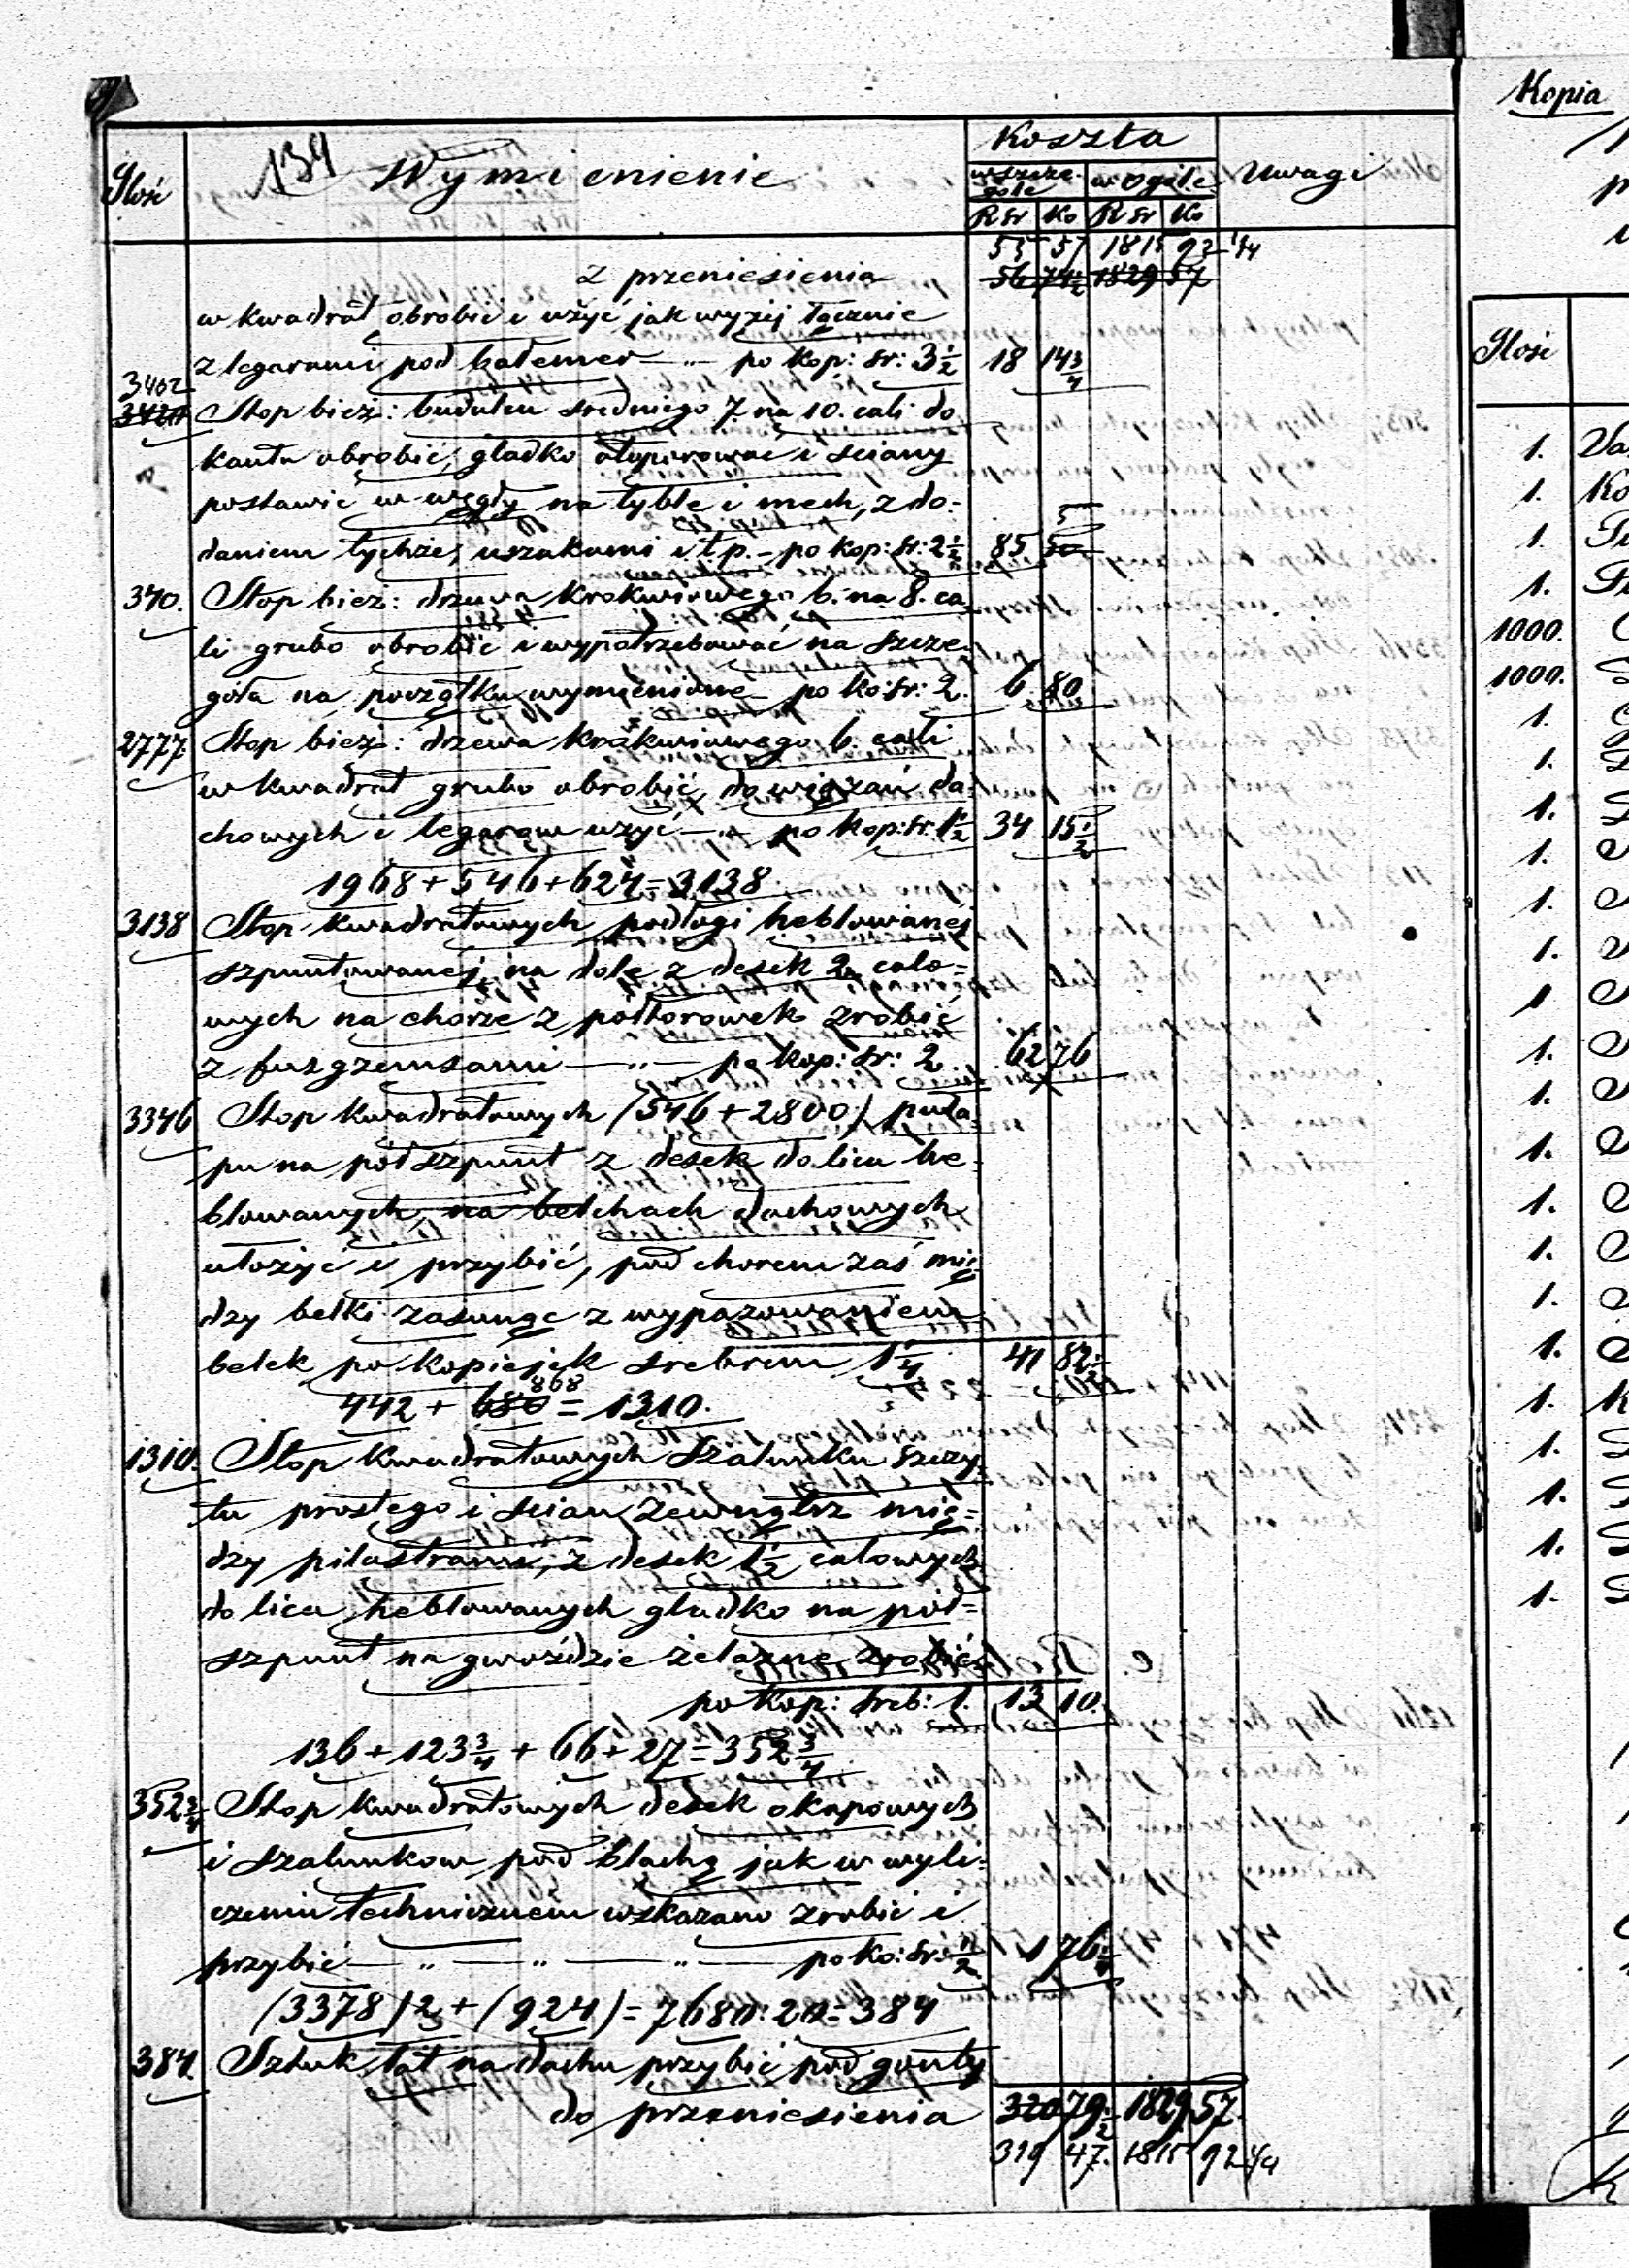 139
Ilość
Wymienienie
Koszta
w szcze-
góle
w ogóle
Uwagi
RSr Ko RSr Ko
53 57 1815 92 1/4
z przeniesienia 56 74 1/2 1829 57
w kwadrat obrobić i użyć jak wyżej łącznie
z legarami pod balemer — „ — po kop: sr: 3 1/2 18 14 3/4
3402
3420 Stop bież: budulcu sredniego 7. na 10. cali do
kantu obrobić, gładko ... i sciany
postawić w węgły na tyble i mech, z do-
5
daniem tychże, uszakami i t.p. — po kop: Sr: 2 1/2 85 50
340. Stop bież: drzewa krokwiowego 6. na 8. ca
li grubo obrobić i wypotrzebować na szcze
góła na początku wymienione po ko: Sr: 2. 6 80
2777. Stop bież: drzewa krokwiowego 6. cali
w kwadrat grubo obrobić, do wiązań da
chowych i legarow użyć — „ — po kop: Sr. 1 1/2 34 15 1/2
1968 + 546 + 624 = 3138
3138 Stop kwadratowych podłogi heblowanej
szpuntowanej na dole z desek 2. calo=
wych na chórze z półtorowek zrobić
z fusgzemsami — „ — po kop: Sr: 2 62 76
3346 Stop kwadratowych (546 + 2800) puła
pu na półszpunt z desek do lica he=
blowanych, na belchach dachowych
ułożyć i przybić, pod chorem zaś mię
dzy belki zasunąć z wypazowaniem
belek po kopiejek srebrem 1 1/4 41 82 1/2
868
442 + 680 = 1310.
1310. Stop kwadratowych szalunku szczy
tu prostego i scian zewnątrz mię=
dzy pilastrami, z desek 1 1/2 calowych
do lica heblowanych gładko na pół=
szpunt na gwoździe żelazne zrobić
po kop: Sreb: 1. 13 10.
136 + 123 3/4 + 66 + 27 = 352 3/4
352 3/4 Stop kwadratowych desek okapowych
i szalunkow pod blachę jak w wyli=
czeniu technicznem wskazano zrobić i
przybić — „ — „ — „ — po ko: Sr: 1/2 1 76 1/4
(3378) 2 + (924) = 7680: 20 = 384
384. Sztuk łat na dachu przybić pod gonty
do przeniesienia 320 79 1/2 1829 57.
319 47. 1815 92 1/4
Kopia
Ilość
1.
1. Ko
1.
1.
1000.
1000.
1.
1.
1.
1.
1.
1.
1
1.
1.
1.
1.
1.
1.
1.
1. K
1.
1.
1.
1.